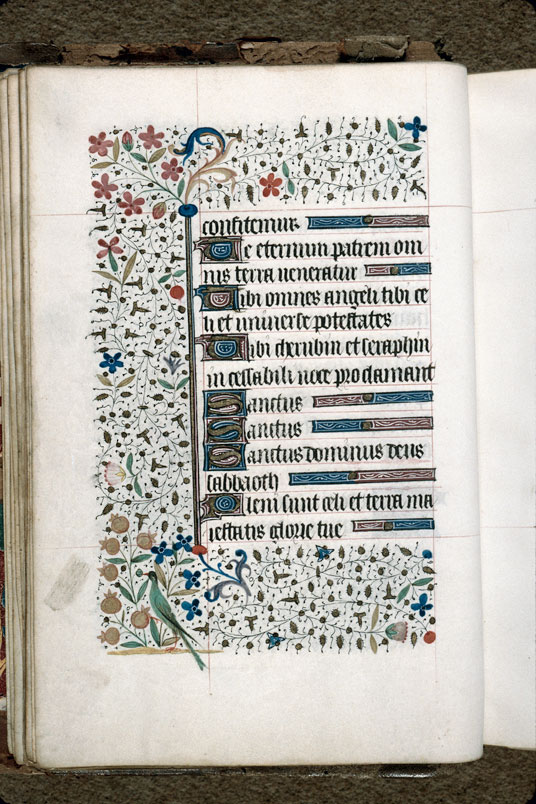 confitemur
Te eternum patrem om
nis terra ueneratur
Tibi omnes angeli tibi ce
li et uniuerse potestates
Tibi cherubin et seraphin
incessabili uoce proclamant
Sanctus
Sanctus
Sanctus dominus deus
sabbaoth
Pleni sunt celi et terra ma
iestatis glorie tue